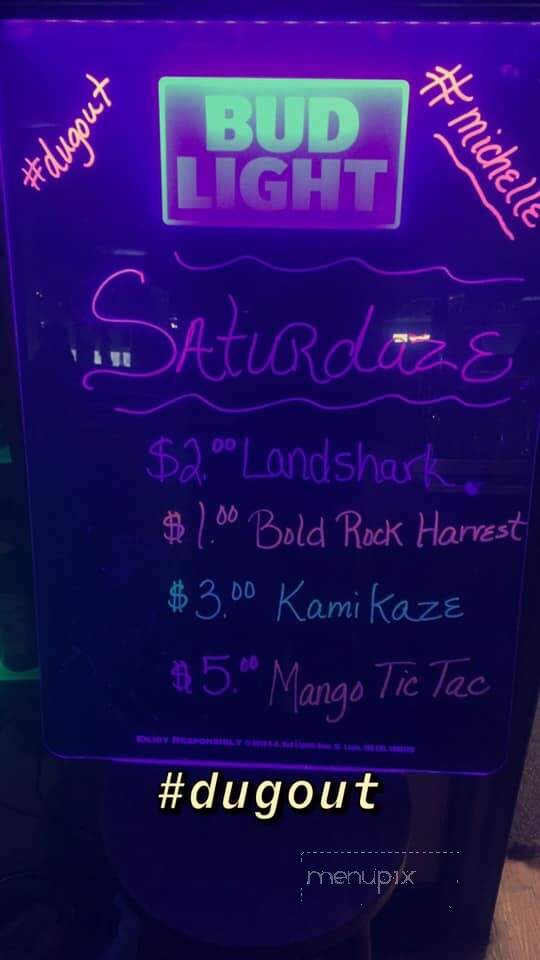 #dugout
BUD
LIGHT
#michelle
SATURdaze
$2.00 Landshark.
$1.00 Bold Rock Harvest
$3.00 Kamikaze
$5.00 Mango Tic Tac
ENJOY RESPONSIBLY
#dugout
menupix